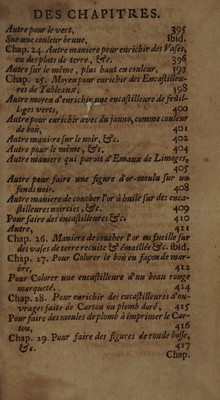 DES CHAPITRES.
Autre pour le vert, 395
Sur une couleur brune, ibid.
Chap. 24. Autre maniere pour enrichir des Vases,
ou des plats de terre, &c. 396
Autre sur le même, plus haut en couleur, 397
Chap. 25. Moyen pour enrichir des Encastilleu-
res de Tableaux, 398
Autre moyen d'enrichir une encastilleure de feüil-
lages verts, 400
Autre pour enrichir avec du jaune, comme couleur
de bois, 401
Autre maniere sur le noir, &c. 402
Autre pour le même, &c. 404
Autre maniere qui paroit d'Emaux de Limoges,
405
Autre pour faire une figure d'or-moulu sur un
fonds noir. 408
Autre maniere de coucher l'or à huile sur des enca-
stilleures noircies &c. 409
Pour faire des encastilleures &c. 410
Autre, 411
Chap. 26. Maniere de coucher l'or en feüille sur
des vases de terre recuite & émaillée &c ibid,
Chap. 27. Pour Colorer le bois en façon de mar-
bre, 412
Pour Colorer une encastilleure d'un beau rouge
marqueté, 414
Chap. 28. Pour enrichir des encastilleures d'ou-
vrages faits de Carton ou plomb doré, 415
Pour faire des moules de plomb à imprimer le Car-
ton, 416
Chap. 29. Pour faire des figures de ronde bosse,
&c. 417
Chap.